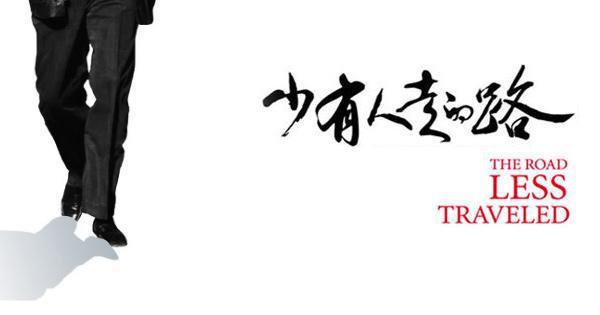 少有人走的路
THE ROAD
LESS
TRAVELED